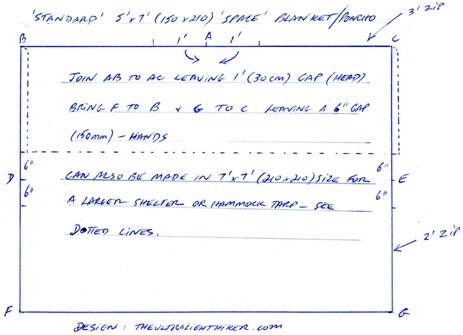 'STANDARD' 5'x7' (150x210) 'SPACE' BLANKET/PONCHO
3' ZIP
B 1' A 1' C
JOIN AB TO AC LEAVING 1' (30CM) GAP (HEAD)
BRING F TO B & G TO C LEAVING A 6" GAP
(150mm) - HANDS
6" 6"
D CAN ALSO BE MADE IN 7'x7' (210x210) SIZE FOR E
6" A LARGER SHELTER OR HAMMOCK TARP - SEE 6"
DOTTED LINES.
2' ZIP
F G
DESIGN: THEULTRALIGHTHIKER.COM